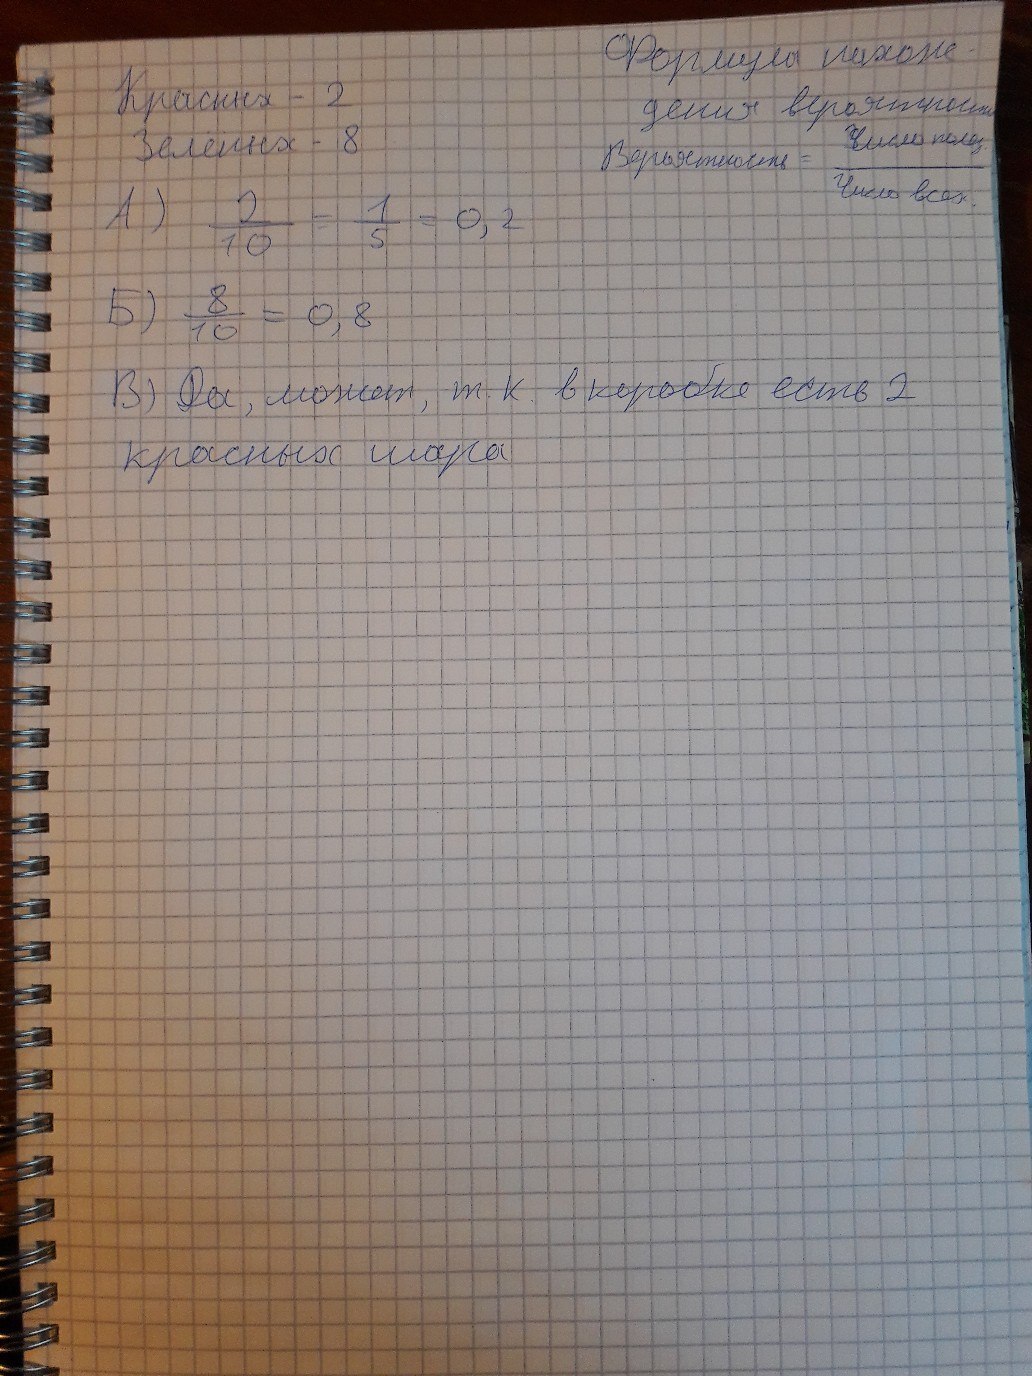 Красных - 2
Зелёных - 8
Формула нахож-
дения вероятности
Вероятность = Число полож. / Число всех.
А) 2/10 = 1/5 = 0,2
Б) 8/10 = 0,8
В) Да, может, т.к. в коробке есть 2
красных шара